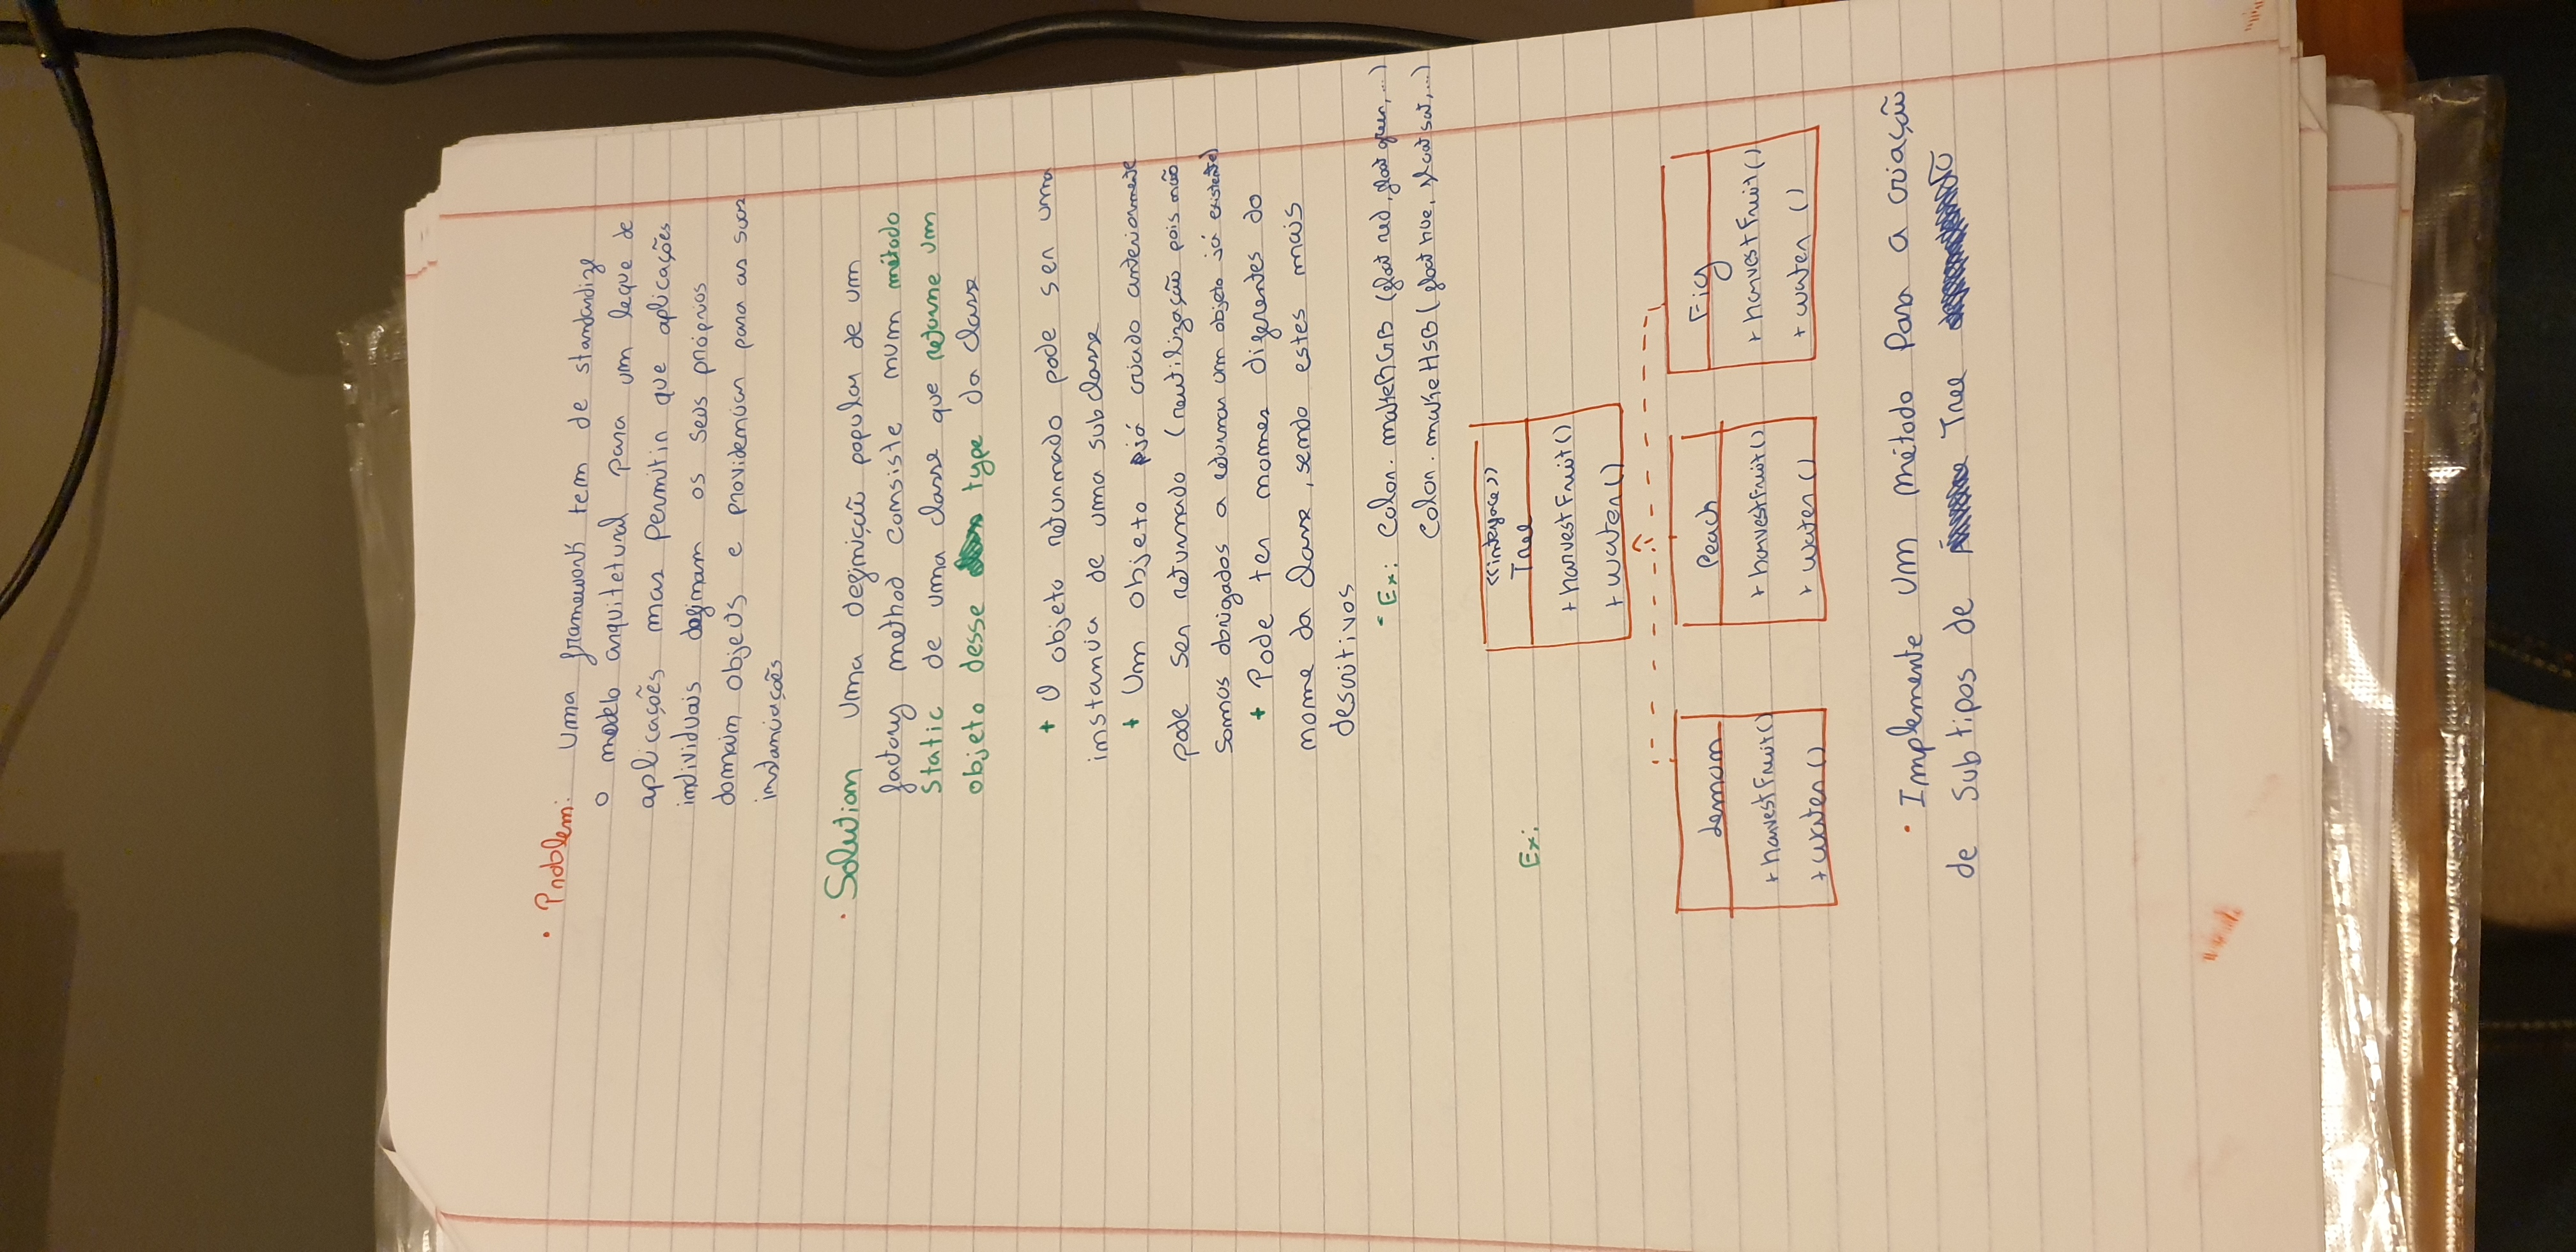 • Problem: Uma framework tem de standardize
o modelo arquitetural para um leque de
aplicações mas permitir que aplicações
individuais definam os seus próprios
domain objets e providenciar para as suas
instanciações
• Solution Uma definição popular de um
factory method consiste num método
static de uma classe que retorne um
objeto desse type da classe
+ O objeto returnado pode ser uma
instancia de uma subclasse
+ Um objeto já criado anteriormente
pode ser returnado (reutilização pois não
somos obrigados a returnar um objeto já existente)
+ Pode ter nomes diferentes do
nome da classe, sendo estes mais
descritivos
- Ex: Color.makeRGB (float red, float green, ...)
Color.makeHSB (float hue, float sat, ...)
Ex:
<<interface>>
Tree
+ harvestFruit()
+ water()
Lemon
+ harvestFruit()
+ water()
Peach
+ harvestFruit()
+ water()
Fig
+ harvestFruit()
+ water ()
• Implemente um método para a criação
de subtipos de Tree